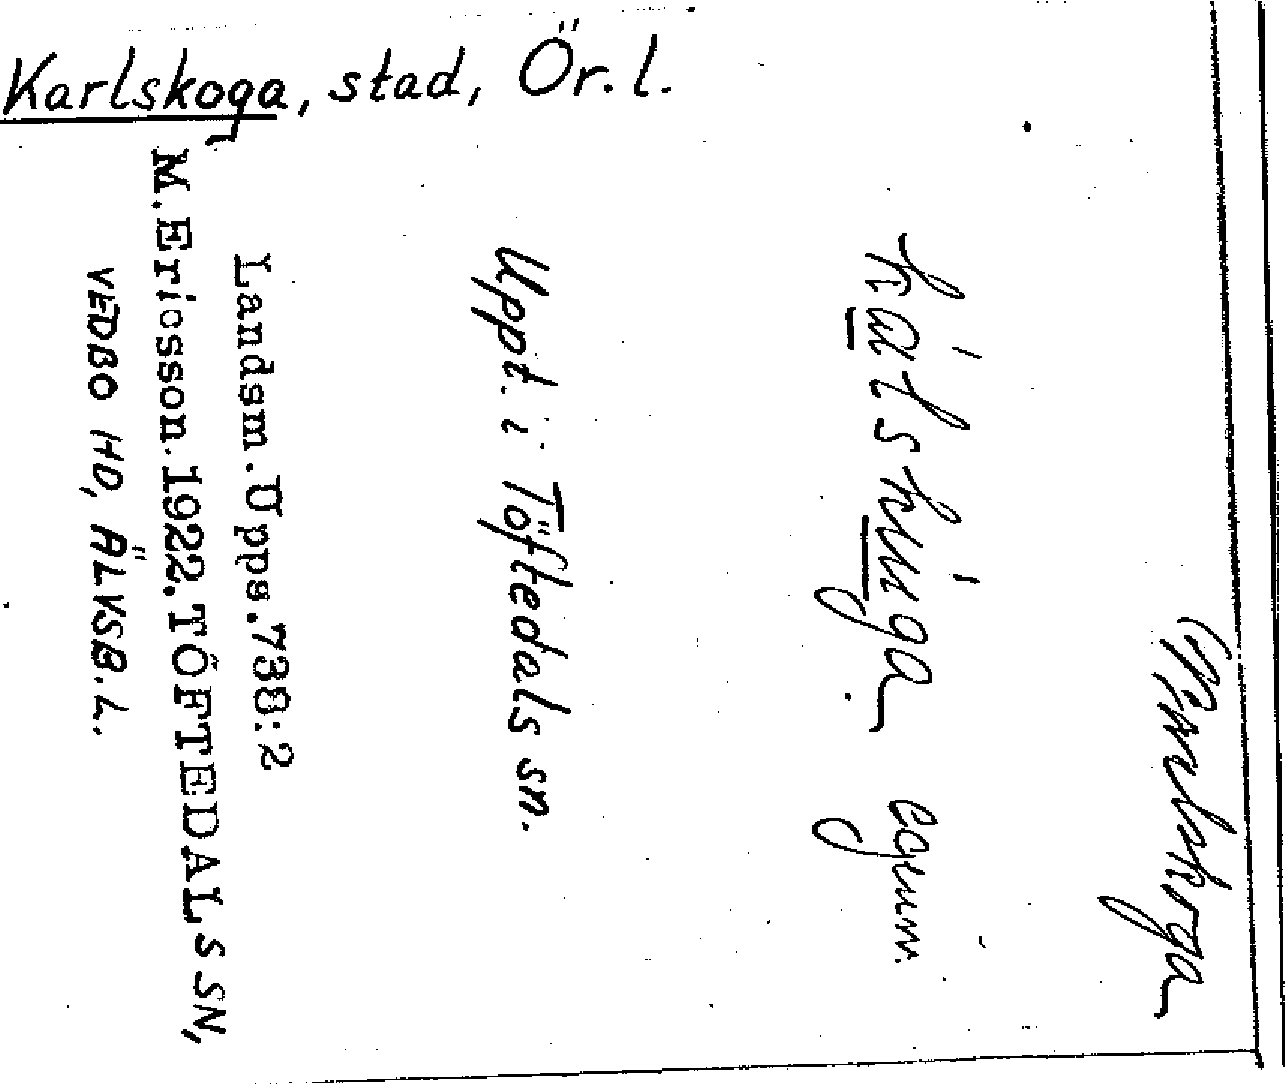 Karlskoga, stad, Ör. l.
egnm.
Uppt. i Töftedals sn.
Landsm. Upps. 738:2
M. Ericsson. 1922. TÖFTEDALS SN,
VEDBO HD, ÄLVSB. L.